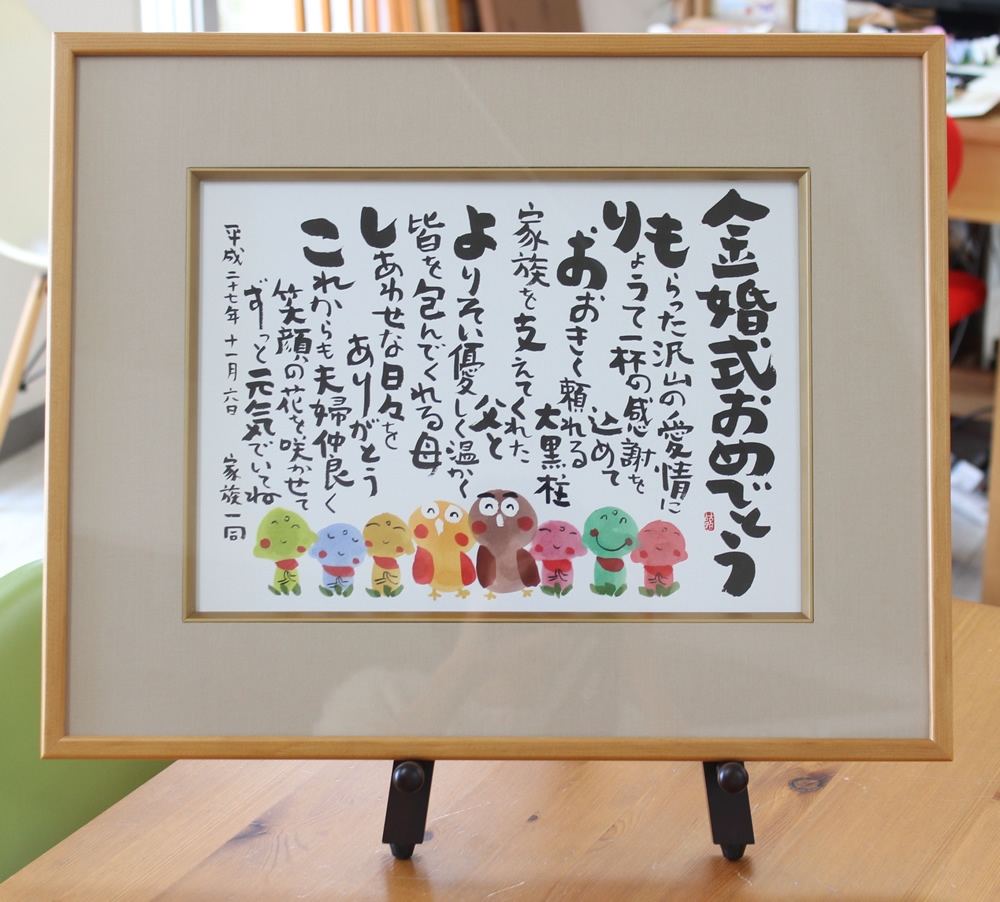 金婚式おめでとう
もらった沢山の愛情に
りょうて一杯の感謝を
込めて
おおきく頼れる
大黒柱
家族を支えてくれた
父と
よりそい優しく温かく
皆を包んでくれる母
しあわせな日々を
ありがとう
これからも夫婦仲良く
笑顔の花を咲かせて
ずっと元気でいてね
平成二十七年 十一月六日 家族一同